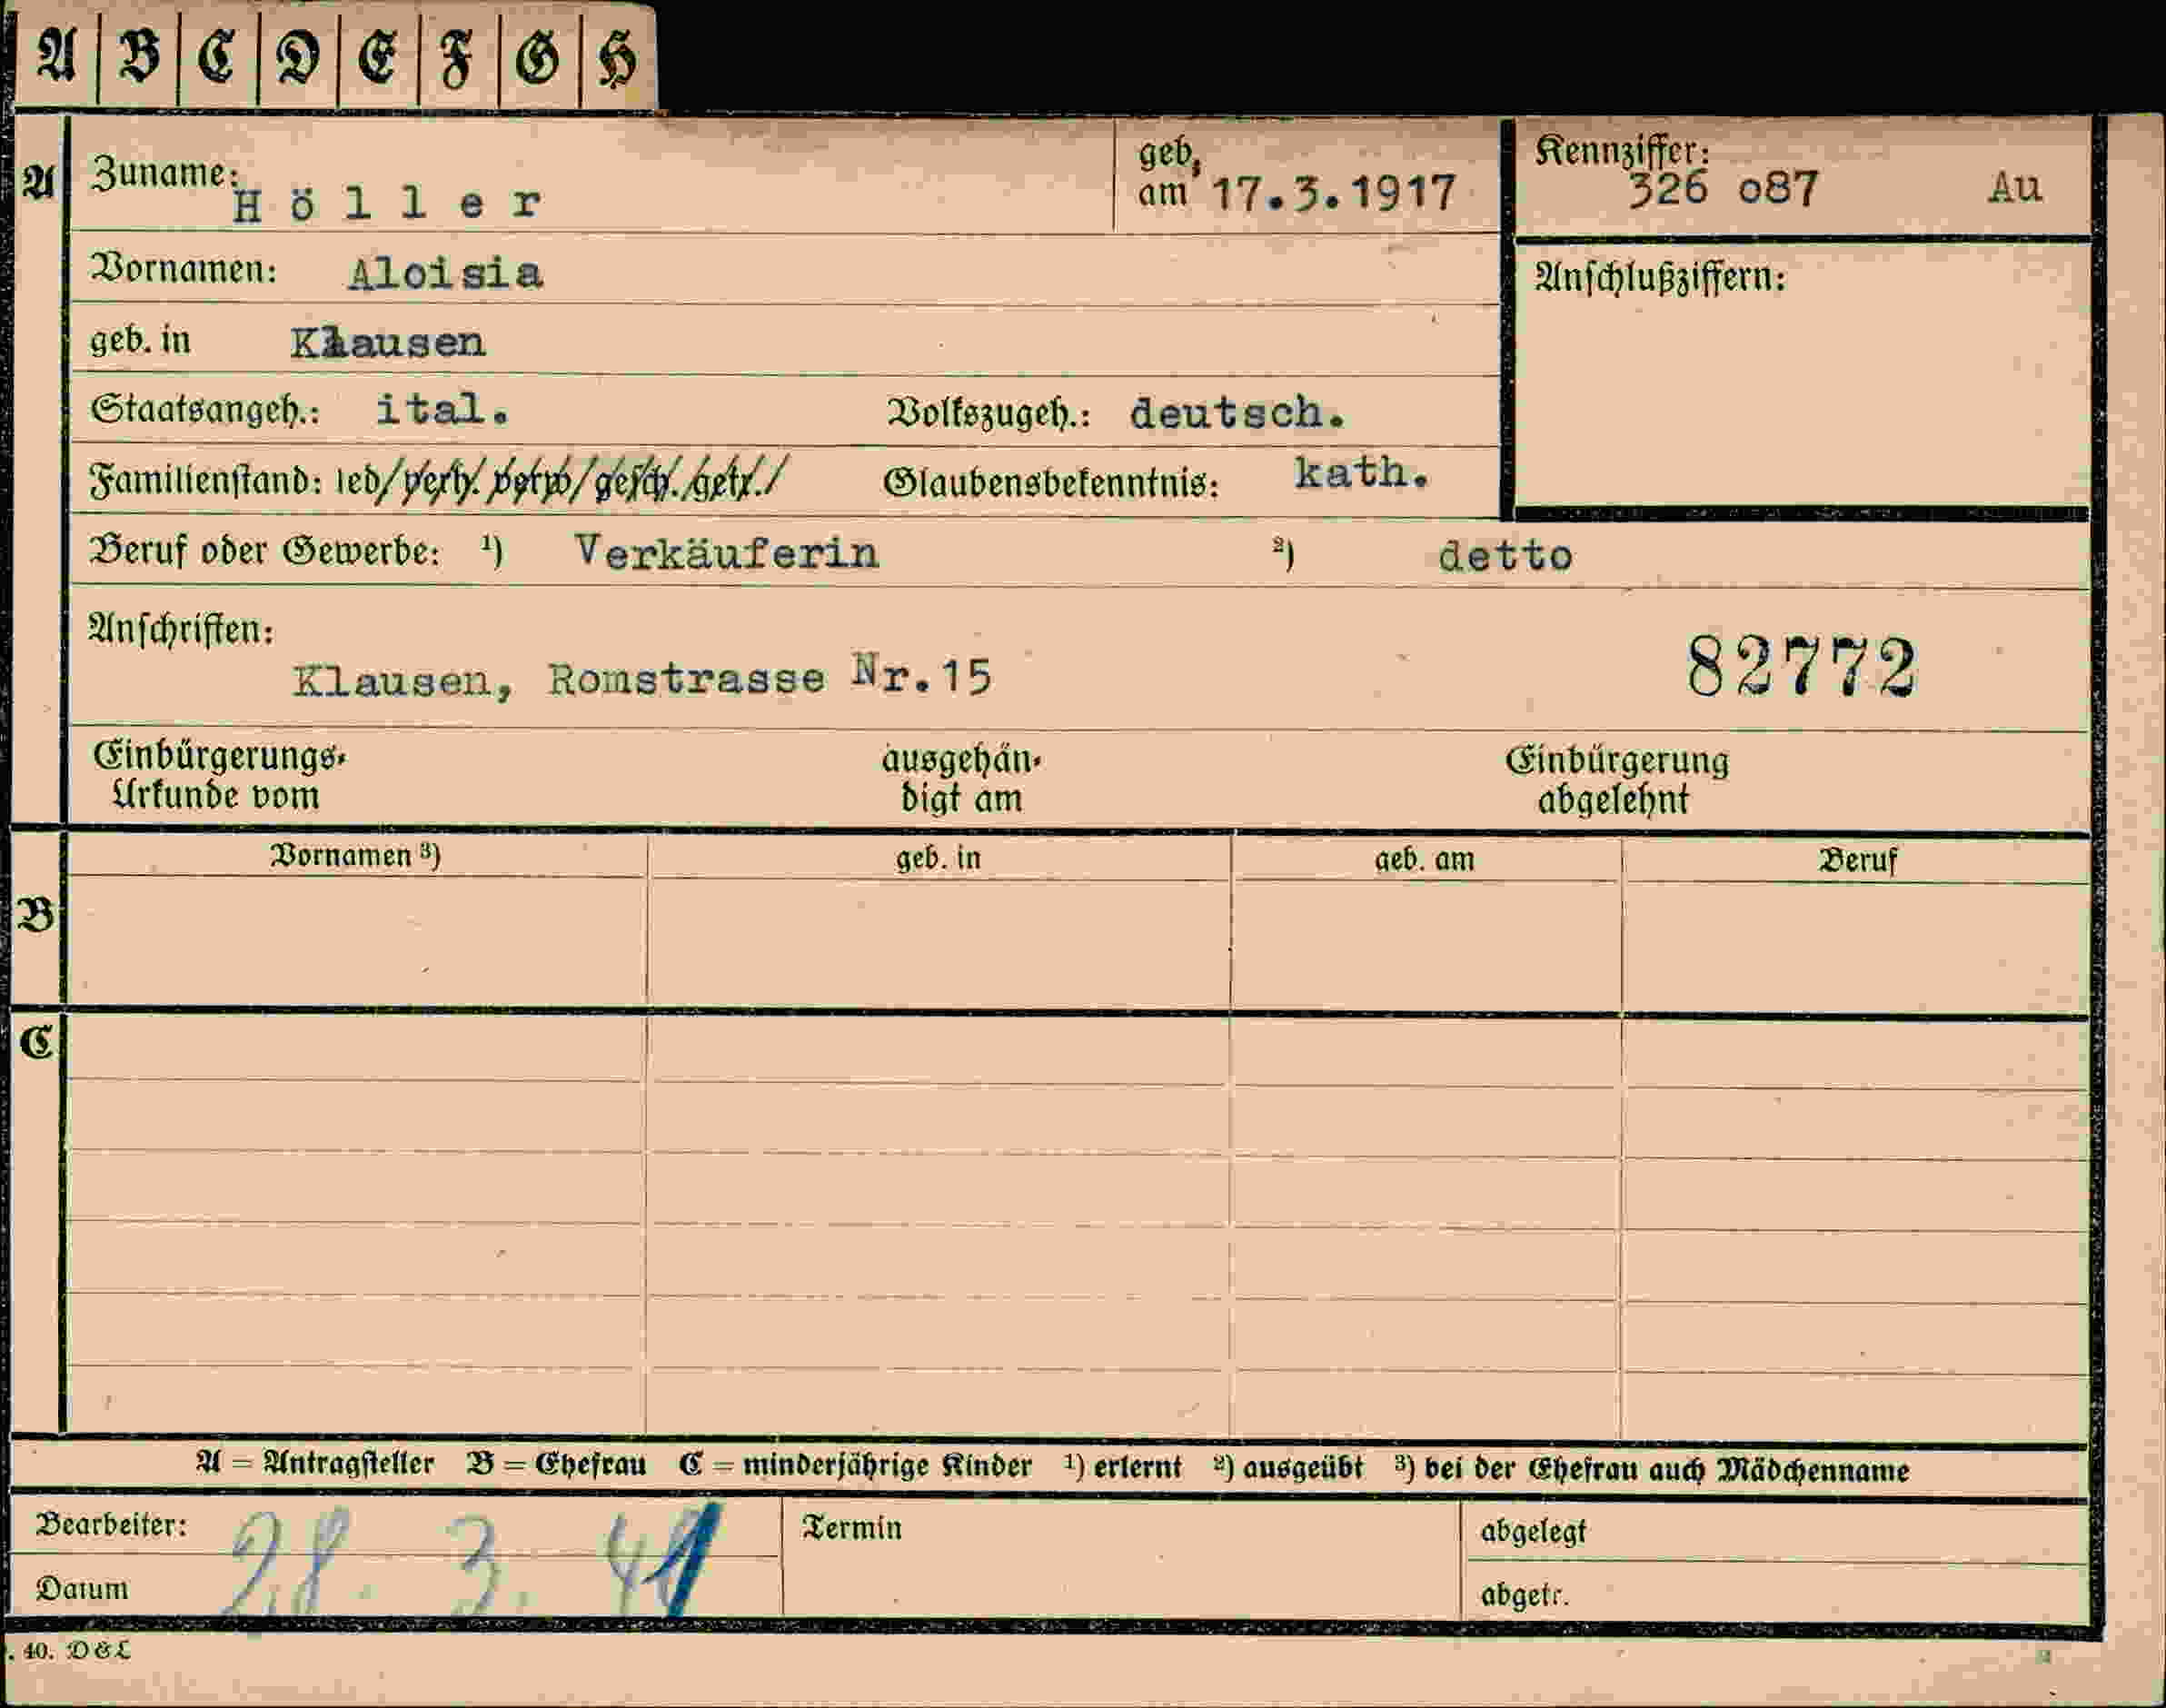 A B C D E F G H
A Zuname: Höller geb. am 17.3.1917 Kennziffer: 326 o87 Au
Vornamen: Aloisia Anschlußziffern:
geb. in Klausen
Staatsangeh.: ital. Volkszugeh.: deutsch.
Familienstand: led/verh. verw/gesch./getr./ Glaubensbekenntnis: kath.
Beruf oder Gewerbe: ¹) Verkäuferin ²) detto
Anschriften:
Klausen, Romstrasse Nr.15 82772
Einbürgerungs-
Urkunde vom
ausgehän-
digt am
Einbürgerung
abgelehnt
Vornamen ³) geb. in geb. am Beruf
B
C
A = Antragsteller B = Ehefrau C = minderjährige Kinder ¹) erlernt ²) ausgeübt ³) bei der Ehefrau auch Mädchenname
Bearbeiter: 28. 3. 41 Termin abgelegt
Datum abgetr.
. 40. D&L